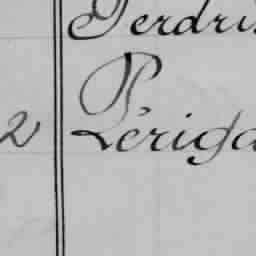 Perdri
2 Périga